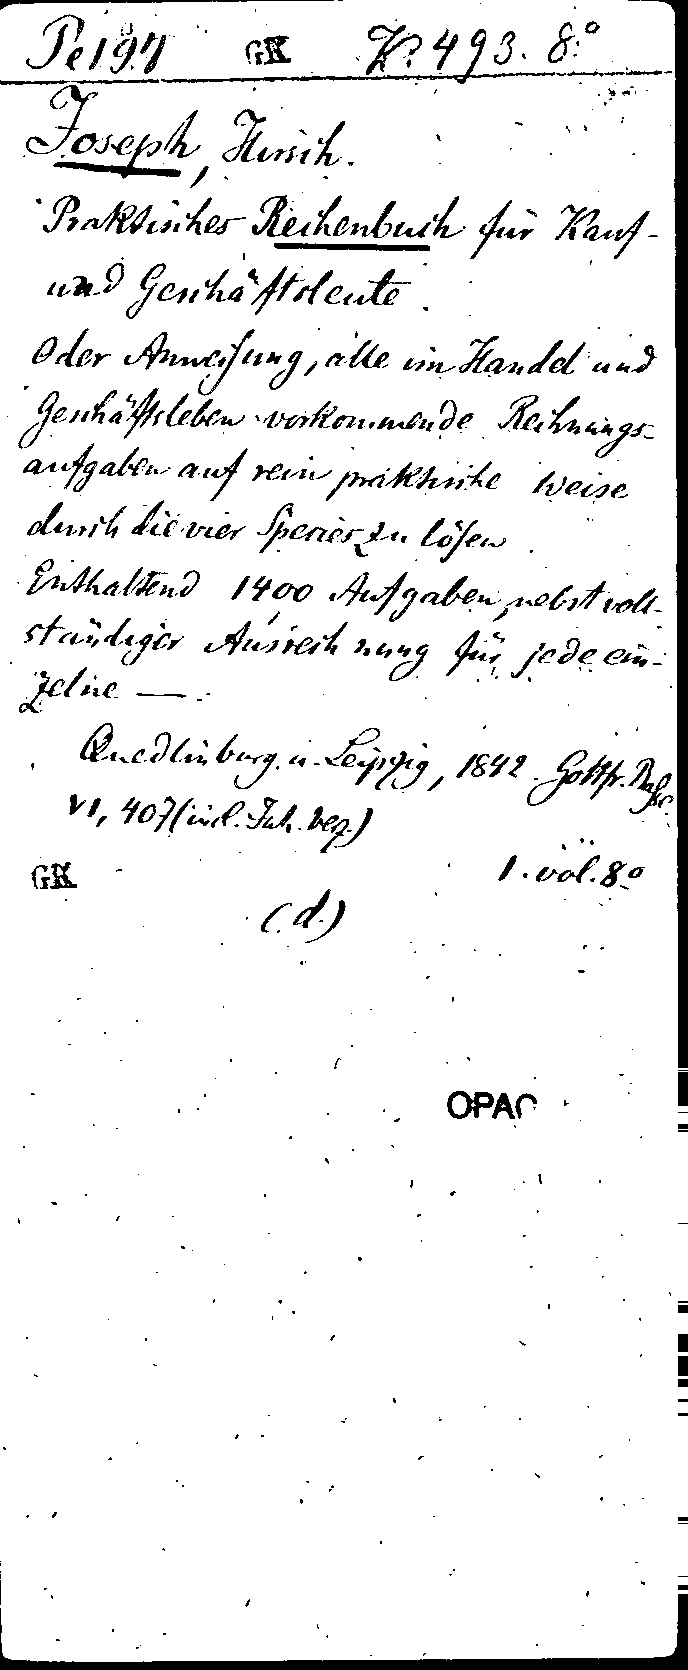 Pe 197 GK K. 493. 8.º
Joseph, Hirsch.
Praktisches Rechenbuch für Kauf-
und Geschäftsleute.
Oder Anweisung, alle im Handel und
Geschäftsleben vorkommende Rechnungs-
aufgaben auf rein praktische Weise
durch die vier Species zu lösen.
Enthaltend 1400 Aufgaben, nebst voll-
ständiger Ausrechnung für jede ein-
zelne —.
Quedlinburg u. Leipzig, 1842. Gottfr. Basse.
VI, 407 (incl. Inh. verz.)
GK 1. vol. 8º
(d.)
OPAC